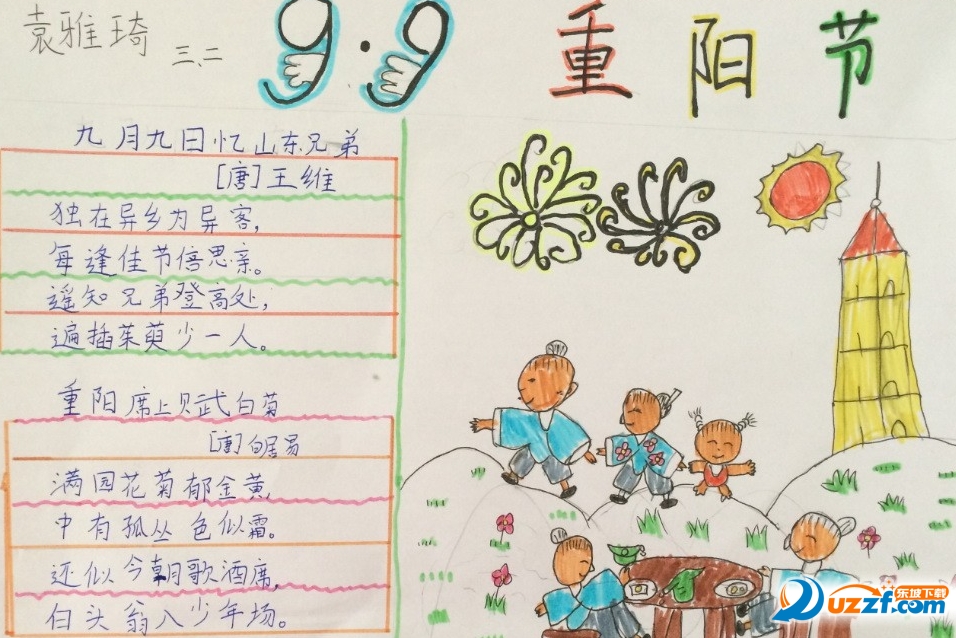 袁雅琦 三、二
9·9 重阳节
九月九日忆山东兄弟
[唐]王维
独在异乡为异客,
每逢佳节倍思亲。
遥知兄弟登高处,
遍插茱萸少一人。
重阳席上贝武白菊
[唐]白居易
满园花菊郁金黄
中有孤丛色似霜。
还似今朝歌酒席,
白头翁入少年场。
东坡下载
uzzf.com